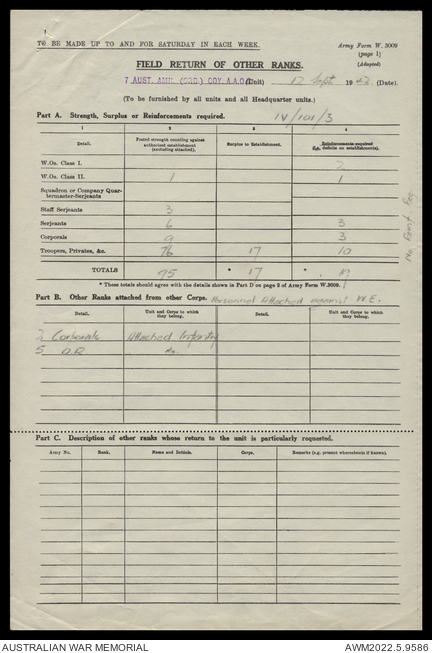 TO BE MADE UP TO AND FOR SATURDAY IN EACH WEEK.
Army Form W. 3009
(page 1)
(Adapted)
FIELD RETURN OF OTHER RANKS.
7 AUST. AMN. (ORD) COY. A.A.O.C. (Unit) 12 Sept 1943 (Date).
(To be furnished by all units and all Headquarter units.)
Part A. Strength, Surplus or Reinforcements required. IV/101/3
1 2 3 4
Detail. Posted strength counting against authorized establishment (excluding attached). Surplus to Establishment. Reinforcements required (i.e. deficits on establishments).
W.Os. Class I. 2
W.Os. Class II. 1 1
Squadron or Company Quar-
termaster-Serjeants
Staff Serjeants 3
Serjeants 6 3
Corporals 9 3
Troopers, Privates, &c. 76 17 10
TOTALS 95 * 17 * 19
* These totals should agree with the details shown in Part D on page 2 of Army Form W.3009.
Part B. Other Ranks attached from other Corps. Personnel Attached against W.E.
Detail. Unit and Corps to which they belong. Detail. Unit and Corps to which they belong.
2 Corporals Attached Infantry
5 O.R do.
Part C. Description of other ranks whose return to the unit is particularly requested.
Army No. Rank. Name and Initials. Corps. Remarks (e.g. present whereabouts if known).
AUSTRALIAN WAR MEMORIAL
AWM2022.5.9586